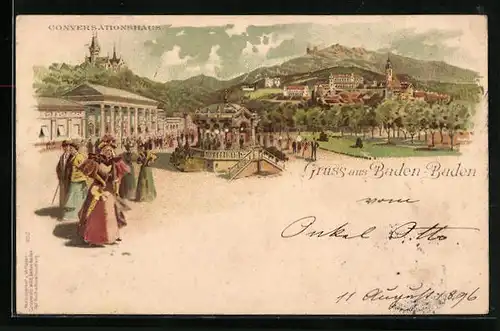 CONVERSATIONSHAUS
Gruss aus Baden-Baden
vom
Onkel Otto
11 August 1896